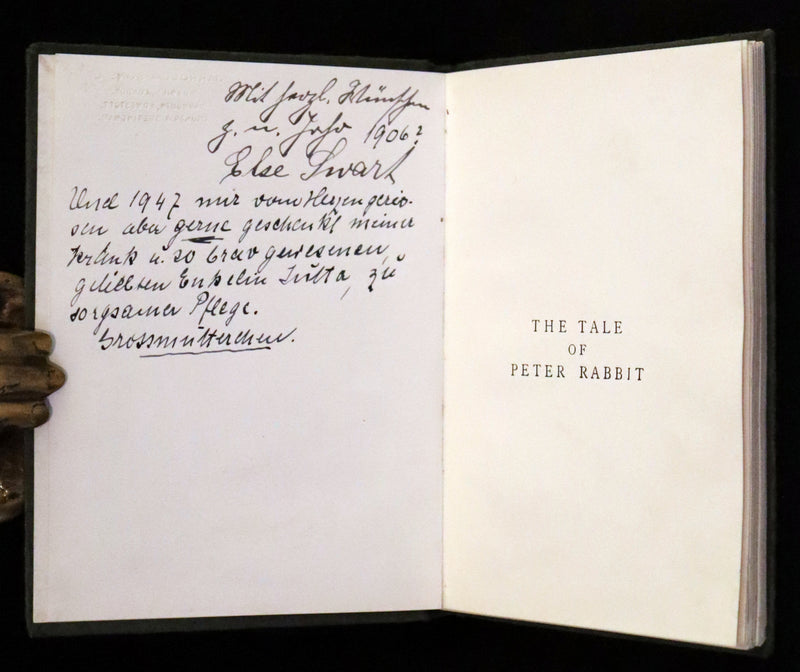 Mit herzl. Wünschen
z. n. Jahr 1906?
Else Swart
Und 1947 mir vom Herzen geris-
sen aber gerne geschenkt meiner
krank u. so brav gewesenen,
geliebten Enkelin Jutta, zu
sorgsamer Pflege.
Grossmütterchen.
THE TALE
OF
PETER RABBIT